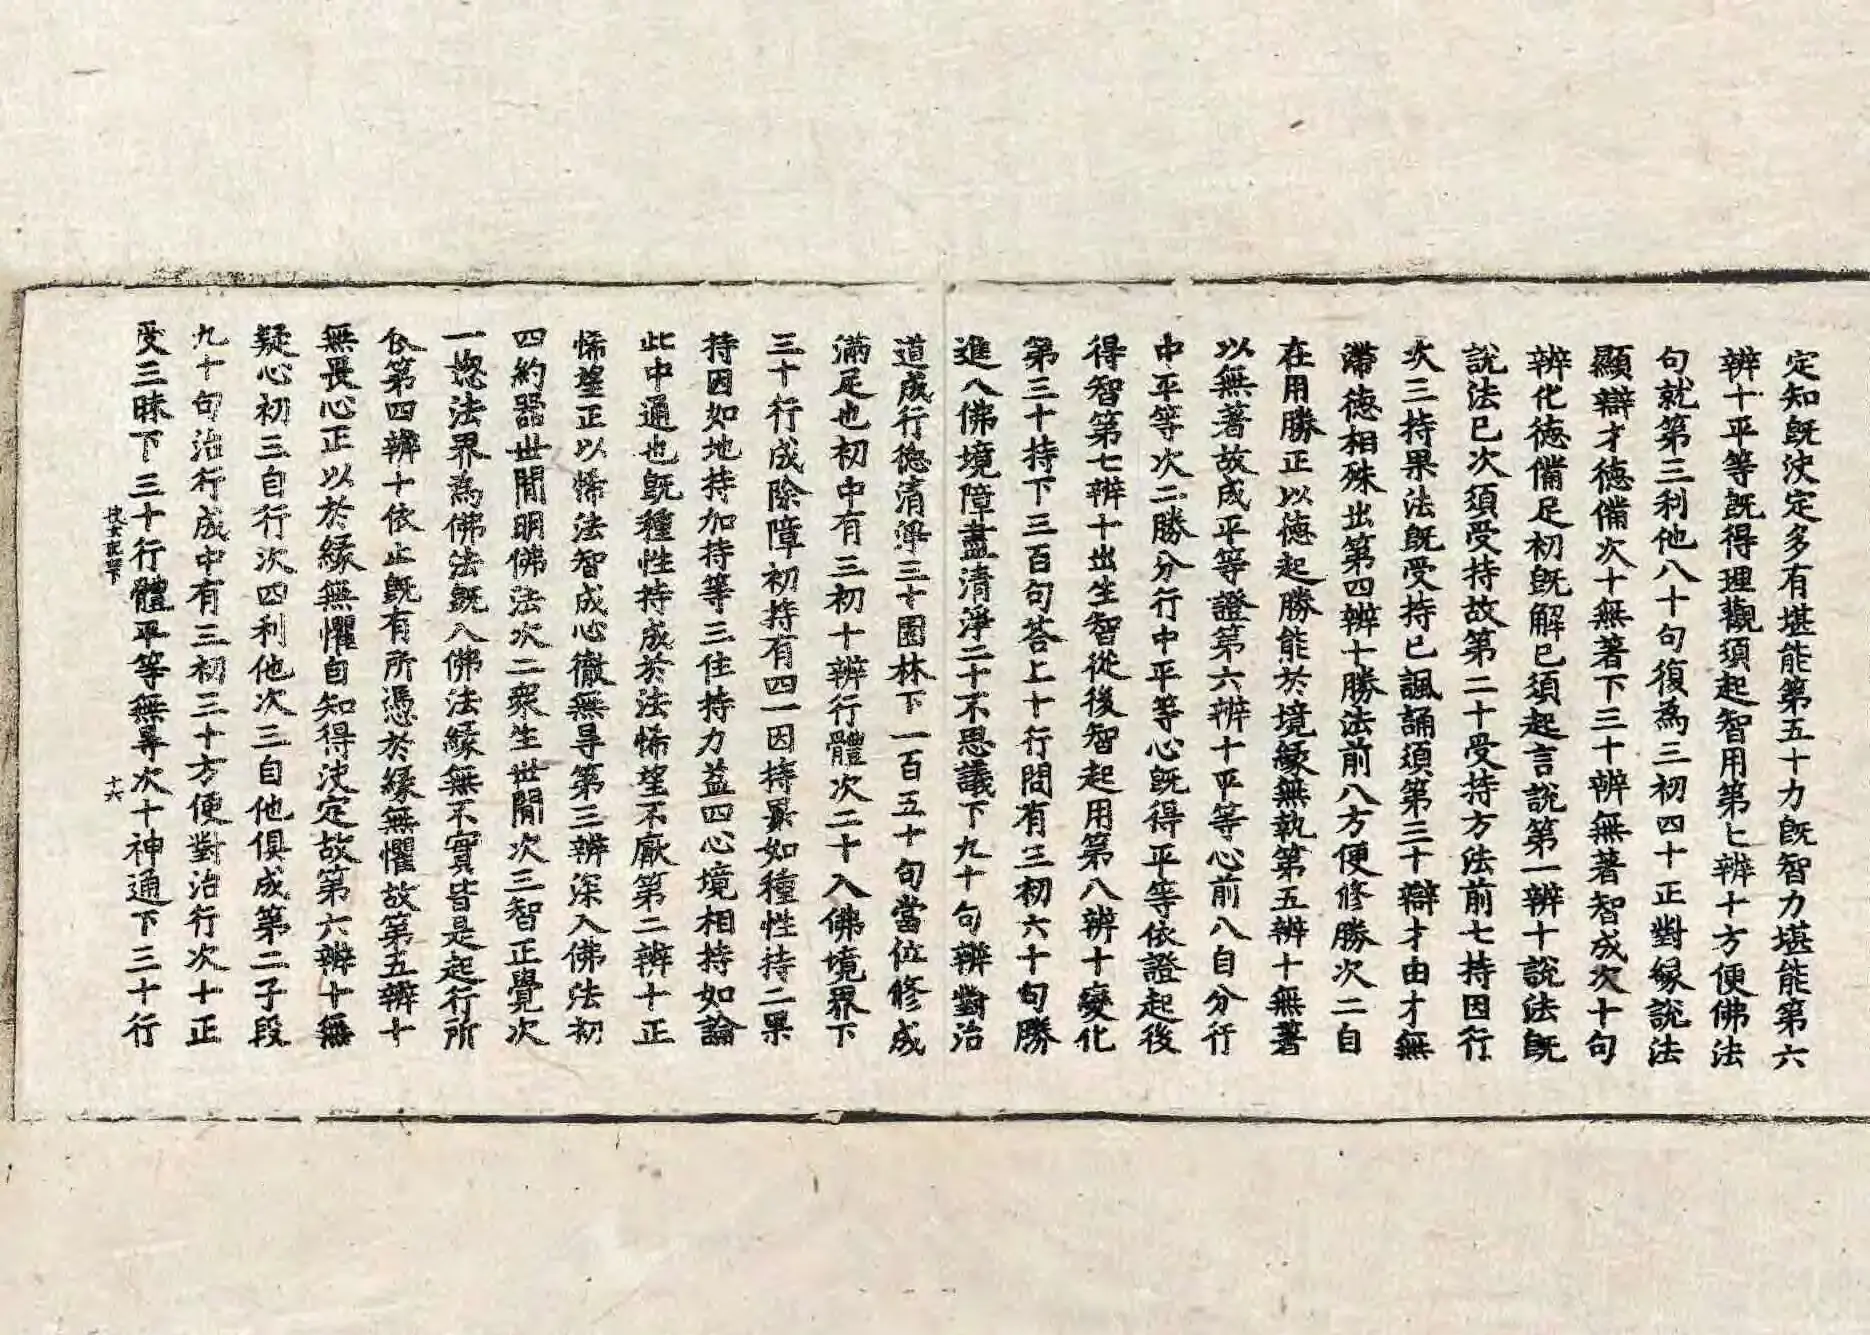 定知既決定多有堪能第五十力既智力堪能第六
辨十平等既得理觀須起智用第七辨十方便佛法
句就第三利他八十句復為三初四十正對縁說法
顯辯才德備次十無著下三十辨無著智成次十句
辨化德備足初既解已須起言說第一辨十說法既
說法已次須受持故第二十受持方法前七持因行
次三持果法既受持已諷誦須第三十辯才由才無
滯德相殊出第四辨十勝法前八方便修勝次二自
在用勝正以德起勝能於境縁無執第五辨十無著
以無著故成平等證第六辨十平等心前八自分行
中平等次二勝分行中平等心既得平等依證起後
得智第七辨十出生智從後智起用第八辨十變化
第三十持下三百句荅上十行問有三初六十句勝
進入佛境障盡清淨二十不思議下九十句辨對治
道成行德清淨三十園林下一百五十句當位修成
滿足也初中有三初十辨行體次二十入佛境界下
三十行成除障初持有四一因持㝡如種性持二果
持因如地持加持等三住持力益四心境相持如論
此中通也既種性持成於法悕望不厭第二辨十正
悕望正以悕法智成心徹無导第三辨深入佛法初
四約器世間明佛法次二衆生世間次三智正覺次
一揔法界為佛法既入佛法縁無不實皆是起行所
依第四辨十依止既有所憑於縁無懼故第五辨十
無畏心正以於縁無懼自知得決定故第六辨十無
疑心初三自行次四利他次三自他俱成第二子段
九十句治行成中有三初三十方便對治行次十正
受三昧下三十行體平等無㝵次十神通下三十行
十六